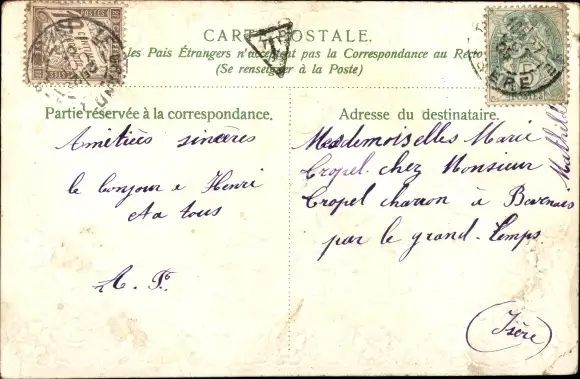 CARTE POSTALE.
les Pais Étrangers n'acceptent pas la Correspondance au Recto
(Se renseigner à la Poste)
T
Partie réservée à la correspondance.
Amitiées sincères
le bonjour e Henri
et a tous
A. P.
Adresse du destinataire.
Mesdemoiselles Marie
Mathilde
Cropel chez Monsieur
Cropel charron à
par le grand-Lemps
(Isère)